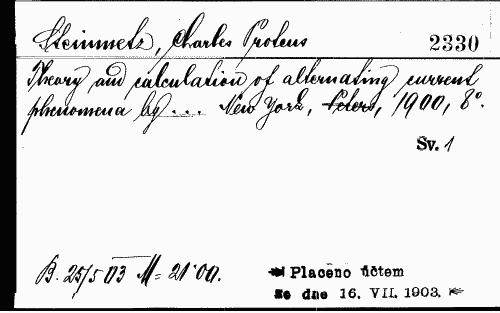 Steinmetz, Charles Proteus 2330
Theory and calculation of alternating current
phenomena by ... New York, Peters, 1900, 8°.
Sv. 1
B. 25/5 03 M= 21·00.
Placeno účtem
ze dne 16. VII. 1903.